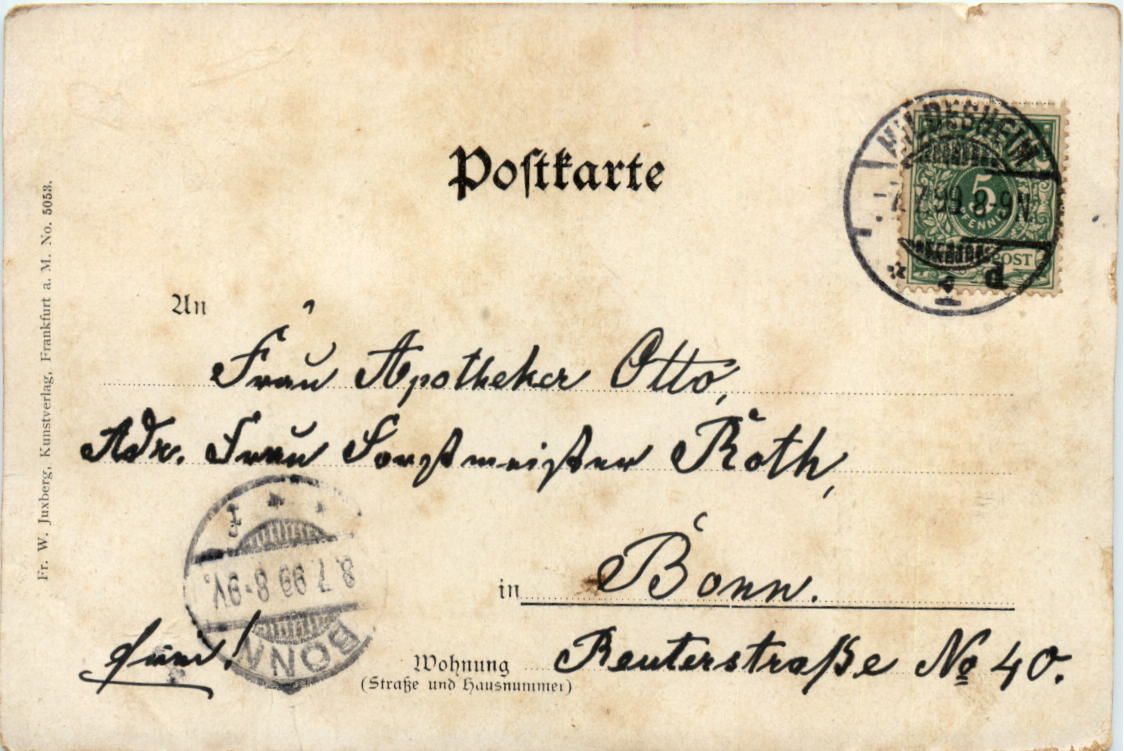 Postkarte
HILDESHEIM
7.7.99. 8-9N.
5
PFENNIG
POST
Fr. W. Juxberg, Kunstverlag, Frankfurt a. M. No. 5053.
An
Frau Apotheker Otto,
Adr. Frau Forstmeister Roth,
in Bonn.
Wohnung Reuterstraße No 40.
(Straße und Hausnummer)
BONN
8.7.99 8-9V.
1